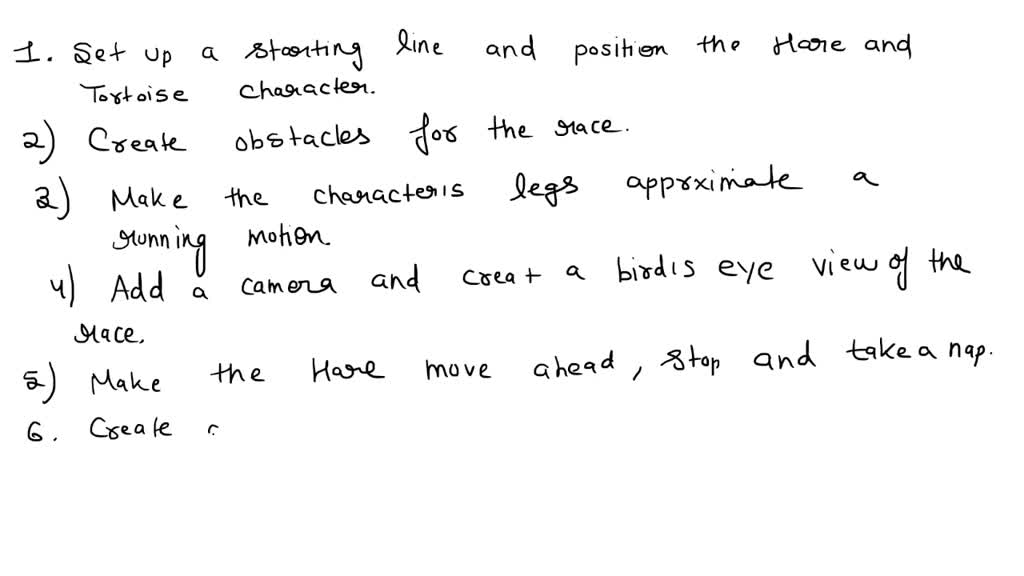 1. Set up a starting line and position the Hare and
Tortoise character.
2) Create obstacles for the race.
3) Make the character's legs apprximate a
running motion
4) Add a camera and creat a bird's eye view of the
race.
5) Make the Hare move ahead, stop and take a nap.
6. Create